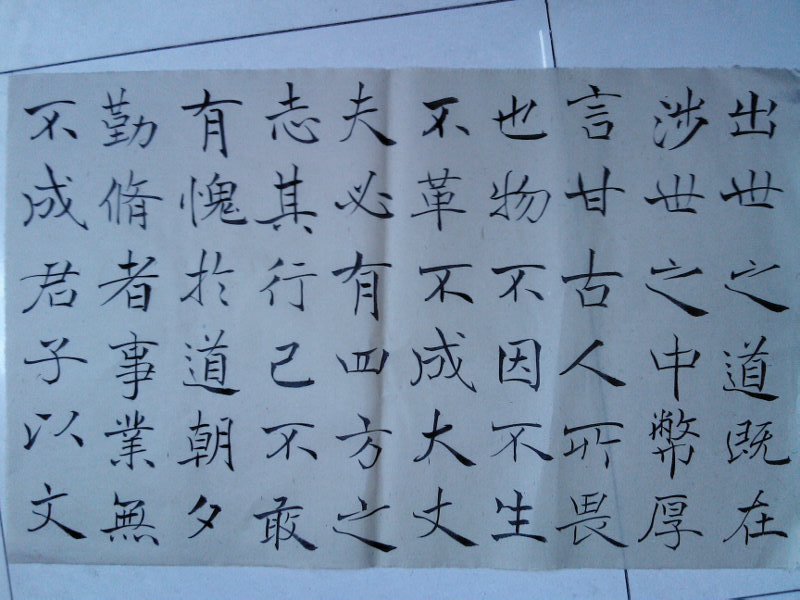 出世之道既在
涉世之中幣厚
言甘古人所畏
也物不因不生
不革不成大丈
夫必有四方之
志其行己不敢
有愧於道朝夕
勤脩者事業無
不成君子以文